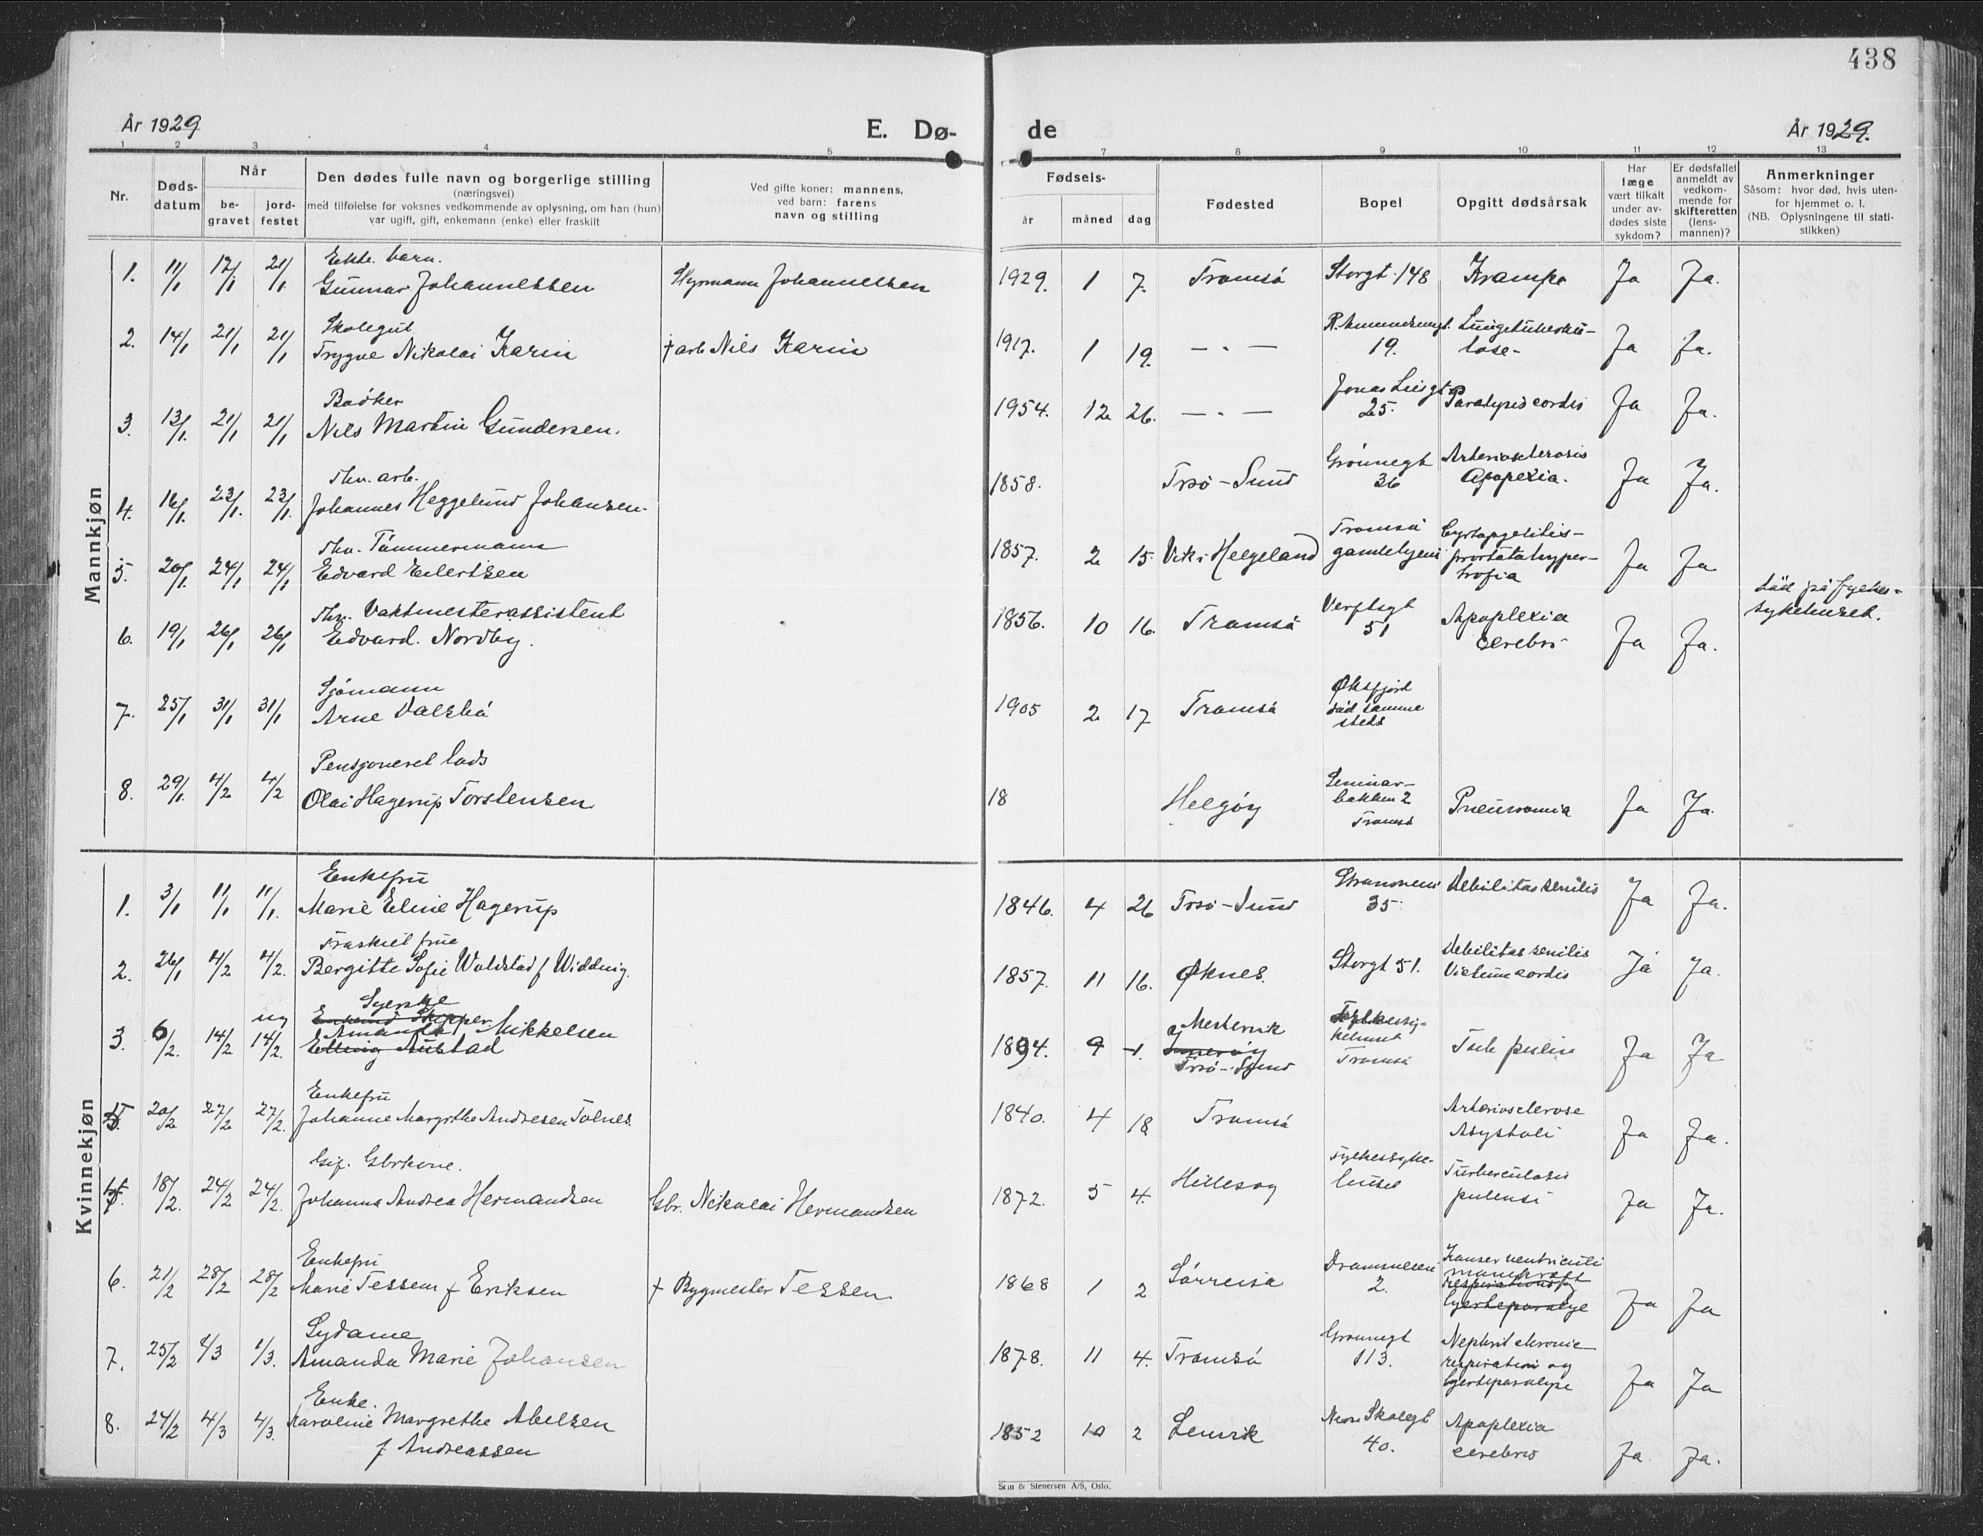 438
År 1929
E. Dø-
de
År 1929.
1 2 3 4 5 7 8 9 10 11 12 13
Nr.
Døds-
datum
Når
be-
gravet
jord-
festet
Den dødes fulle navn og borgerlige stilling
(næringsvei)
med tilføielse for voksnes vedkommende av oplysning, om han (hun)
var ugift, gift, enkemann (enke) eller fraskilt
Ved gifte koner: mannens,
ved barn: farens
navn og stilling
Fødsels-
år
måned
dag
Fødested
Bopel
Opgitt dødsårsak
Har
læge
vært tilkalt
under av-
dødes siste
sykdom?
Er dødsfallet
anmeldt av
vedkom-
mende for
skifteretten
(lens-
mannen)?
Anmerkninger
Såsom: hvor død, hvis uten-
for hjemmet o. l.
(NB. Oplysningene til stati-
stikken)
Mannkjøn
Ekte. barn.
1. 11/1 17/1 21/1 Gunnar Johannessen Johannessen 1929. 1 7. Tromsø Storgt. 148 Krampe Ja Ja.
Skolegut
2. 14/1 21/1 21/1 Trygve Nikolai Karin + arb Nils Karin 1917. 1 19. — „ — R. Amundsensgt. 19. Lungetuberku-
lose- Ja Ja.
Bødker
3. 13/1 21/1 21/1 Nils Martin Gundersen. 1954. 12 26. — „ — Jonas Liesgt 25. Paralysis cordis Ja Ja.
Fhv. arb.
4. 16/1 23/1 23/1 Johannes Heggelund Johansen. 1858. Trsø-Sund Grønnegt 36 Arteriosclerosis
Apoplexia. Ja Ja.
Fhv. Tømmermann
5. 20/1 24/1 24/1 Edvard Eilertsen 1857. 2 15. Vik i Helgeland Tromsø
gamlehjem
prostatahyper-
trofia Ja Ja
Fhv. Vaktmesterassistent
6. 19/1 26/1 26/1 Edvard Nordby. 1856. 10 16. Tromsø Verftsgt
51 Apoplexia
cerebri Ja Ja.
død på fylkes-
sykehuset.
Sjømann
7. 25/1 31/1 31/1 Arne Valsbø 1905 2 17 Tromsø Øksfjord
død samme
steds
Pensjoneret lods
8. 29/1 4/2 4/2 Olai Hagerup Torstensen 18 Helgøy Seminar-
bakken 2
Tromsø Pneumonia Ja Ja.
Kvinnekjøn
Enkefru
1. 3/1 11/1 11/1. Marie Eline Hagerup 1846. 4 26 Trsø-Sund Strandveien
35. Debilitas senilis Ja Ja.
Fraskilt frue
2. 26/1 4/2 4/2. Bergitte Sofie Woldstad f Widding. 1857. 11 16. Øknes. Storgt 51. Debilitas senilis
Vitium cordis Ja Ja.
Syerske
ug
3. 6/2. 14/2 14/2. Amanda Mikkelsen
1894. 9 1. Mestervik
Trsø-Sund Fylkessy-
kehuset
Tromsø Ja Ja
Enkefru
20/2 27/2 27/2. Johanne Margrthe Andresen Tolnes. 1840. 4 18 Tromsø Arteriosclerose
Asystoli Ja Ja.
Gif. Gbrkone.
18/2. 24/2 24/2. Johanna Andrea Hermandsen Gbr. Nikolai Hermandsen 1872. 5 4. Hillesøy Fylkessyke-
huset Turberculosis
pulensi Ja Ja.
Enkefru
6. 21/2 28/2 28/2 Marie Tessem f Eriksen + Bygmester Tessem 1868 1 2 Sørreisa Dramsveien
2. Kanser ventriculi
Ja Ja
Sydame
7. 25/2 4/3 1/3. Amanda Marie Johansen 1878. 11 4. Tromsø Grønnegt
113. Nephrit chronic
respiration og
hjerteparalyse Ja Ja
Enke.
8. 24/2 4/3 4/3. Karoline Margrethe Abelsen
f Andreassen 1852 10 2 Lenvik Nore Skolegt
40. Apoplexia
cerebri Ja Ja.
Sem & Stenersen A/S, Oslo.